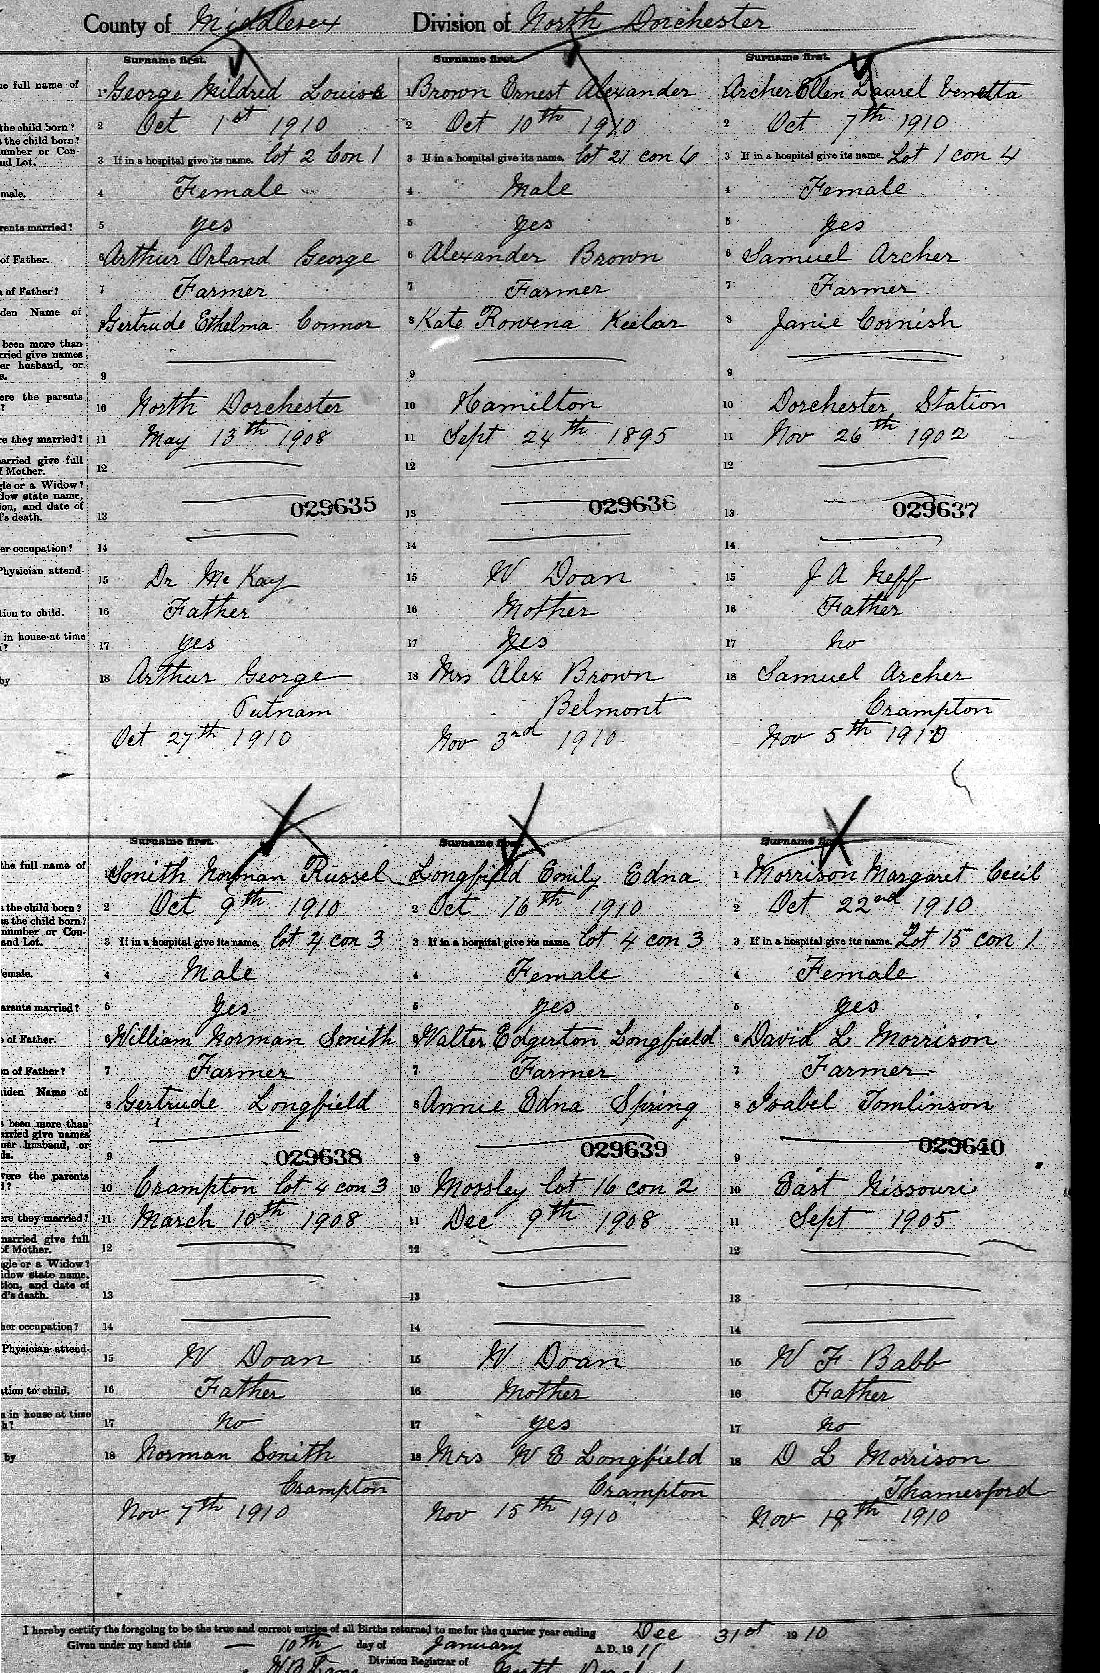 County of Middlesex Division of North Dorchester
Surname first. Surname first. Surname first.
e full name of 1 George Mildred Louise 1 Brown Ernest Alexander Archer Ellen Laurel Venetta
the child born? 2 Oct 1st 1910 2 Oct 10th 1910 2 Oct 7th 1910
s the child born?
umber or Con-
nd Lot. 3 If in a hospital give its name. lot 2 Con 1 3 If in a hospital give its name. lot 21 con 6 3 If in a hospital give its name. Lot 1 con 4
male. 4 Female 4 Male 4 Female
rents married? 5 yes 5 yes 5 yes
of Father. 6 Arthur Orland George 6 Alexander Brown 6 Samuel Archer
n of Father? 7 Farmer 7 Farmer 7 Farmer
den Name of 8 Gertrude Ethelma Connor 8 Kate Rowena Keelar 8 Janie Cornish
been more than
rried give names
er husband, or
s. 9 9 9
ere the parents
? 10 North Dorchester 10 Hamilton 10 Dorchester Station
e they married? 11 May 13th 1908 11 Sept 24th 1895 11 Nov 26th 1902
arried give full
f Mother. 12 12 12
gle or a Widow?
dow state name,
ion, and date of
's death. 13 029635 13 029636 13 029637
er occupation? 14 14 14
Physician attend- 15 Dr McKay 15 W Doan 15 J A Neff
tion to child. 16 Father 16 Mother 16 Father
in house at time
? 17 yes 17 yes 17 no
by 18 Arthur George 18 Mrs Alex Brown 18 Samuel Archer
Putnam Belmont Crampton
Oct 27th 1910 Nov 3rd 1910 Nov 5th 1910
Surname first. Surname first. Surname first.
the full name of Smith Norman Russel Longfield Emily Edna 1 Morrison Margaret Cecil
s the child born? 2 Oct 9th 1910 2 Oct 16th 1910 2 Oct 22nd 1910
as the child born?
number or Con-
and Lot. 3 If in a hospital give its name. lot 4 con 3 3 If in a hospital give its name. lot 4 con 3 3 If in a hospital give its name. Lot 15 con 1
emale. 4 Male 4 Female 4 Female
arents married? 5 yes 5 yes 5 yes
e of Father. 6 William Norman Smith 6 Walter Edgerton Longfield 6 David L Morrison
on of Father? 7 Farmer 7 Farmer 7 Farmer
iden Name of 8 Gertrude Longfield 8 Annie Edna Spring 8 Isabel Tomlinson
s been more than
arried give names
ner husband, or
ds. 9 029638 9 029639 9 029640
were the parents
d? 10 Crampton lot 4 con 3 10 Mossley lot 16 con 2 10 East Nissouri
ere they married? 11 March 10th 1908 11 Dec 9th 1908 11 Sept 1905
married give full
of Mother. 12 12 12
gle or a Widow?
idow state name,
tion, and date of
d's death. 13 13 13
her occupation? 14 14 14
Physician attend- 15 W Doan 15 W Doan 15 W F Babb
ation to child. 16 Father 16 Mother 16 Father
n in house at time
h? 17 no 17 yes 17 no
by 18 Norman Smith 18 Mrs W E Longfield 18 D L Morrison
Crampton Crampton Thamesford
Nov 7th 1910 Nov 15th 1910 Nov 19th 1910
I hereby certify the foregoing to be the true and correct entries of all Births returned to me for the quarter year ending Dec 31st 1910
Given under my hand this 10th day of January A.D. 1911
Division Registrar of North